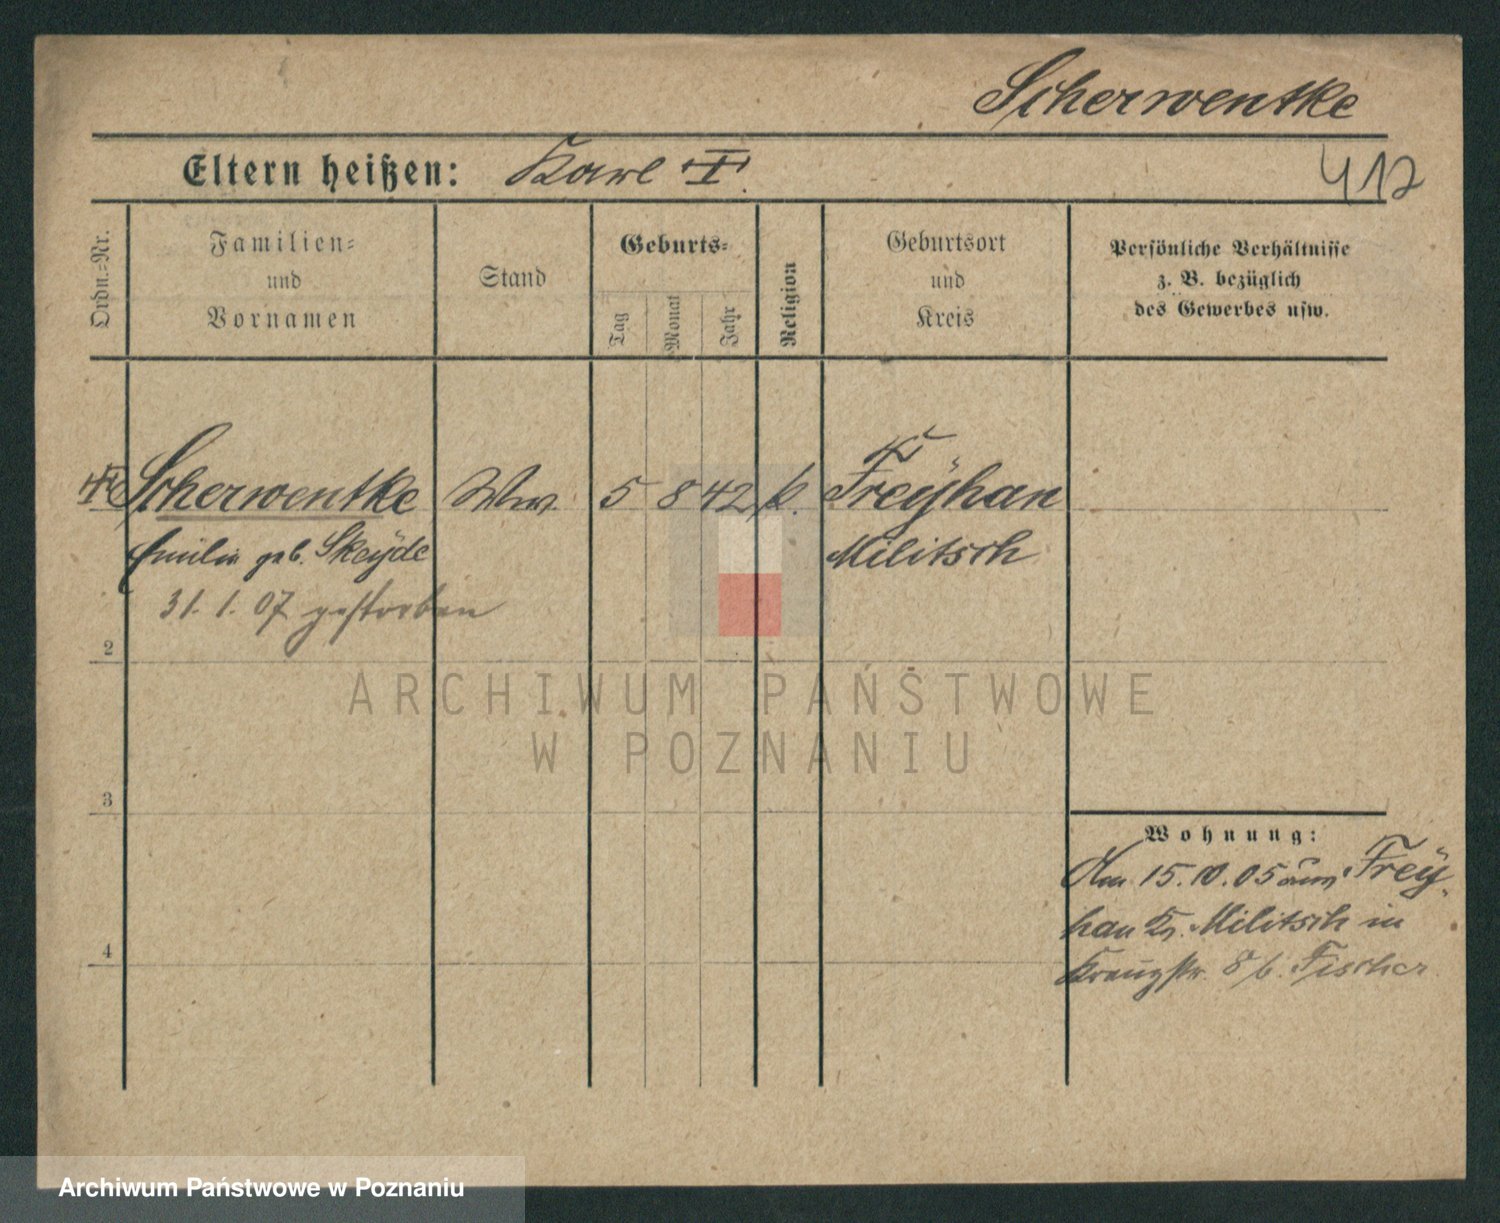 Scherwentke
417
Eltern heißen: Karl
Ordn.-Nr.
Familien-
und
Vornamen
Stand
Geburts-
Tag
Monat
Jahr
Religion
Geburtsort
und
Kreis
Persönliche Verhältnisse
z. B. bezüglich
des Gewerbes usw.
Scherwentke Ww. 5 8 42 k. Freÿhan
Emilie geb. Skeÿde Militsch
31. 1. 07 gestorben
2
3
4
ARCHIWUM PAŃSTWOWE
W POZNANIU
Wohnung:
Am 15.10.05 aus Freÿ-
han Kr. Militsch in
Kreuzstr. 8 b. Fischer
Archiwum Państwowe w Poznaniu